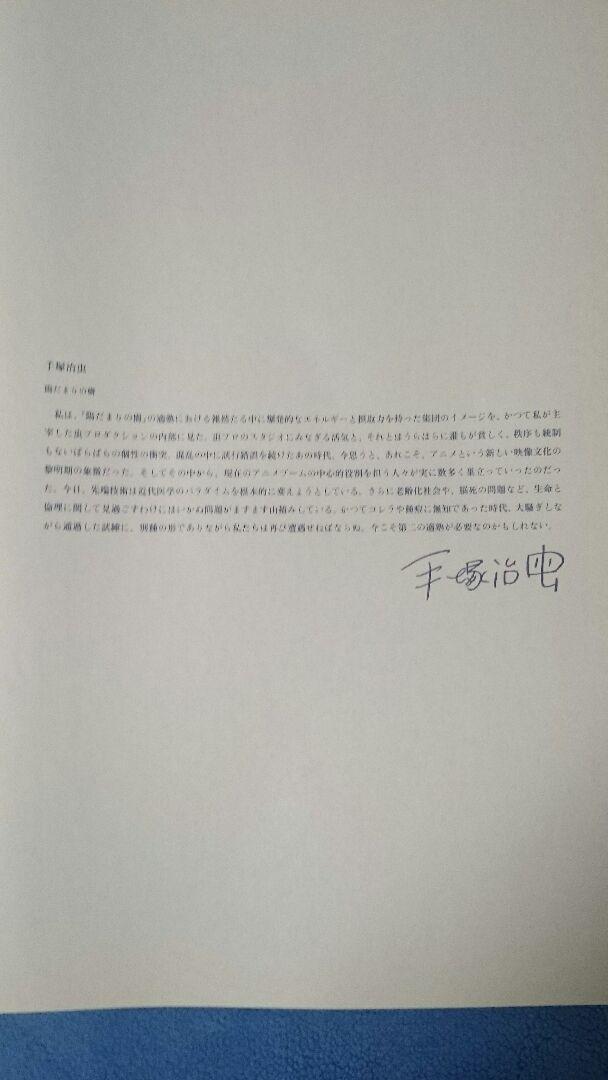 手塚治虫
陽だまりの樹
私は、「陽だまりの樹」の適塾における雑然たる中に爆発的なエネルギーと摂取力を持った集団のイメージを、かつて私が主
宰した虫プロダクションの内部に見た。虫プロのスタジオにみなぎる活気と、それとはうらはらに誰もが貧しく、秩序も統制
もないばらばらの個性の衝突。混乱の中に試行錯誤を続けたあの時代。今思うと、あれこそ、アニメという新しい映像文化の
黎明期の象徴だった。そしてその中から、現在のアニメブームの中心的役割を担う人々が実に数多く巣立っていったのだっ
た。今日、先端技術は近代医学のパラダイムを根本的に変えようとしている。さらに老齢化社会や、脳死の問題など、生命と
倫理に関して見過ごすわけにはいかぬ問題がますます山積みしている。かつてコレラや種痘に無知であった時代、大騒ぎしな
がら通過した試練に、別種の形でありながら私たちは再び遭遇せねばならぬ。今こそ第二の適塾が必要なのかもしれない。
手塚治虫